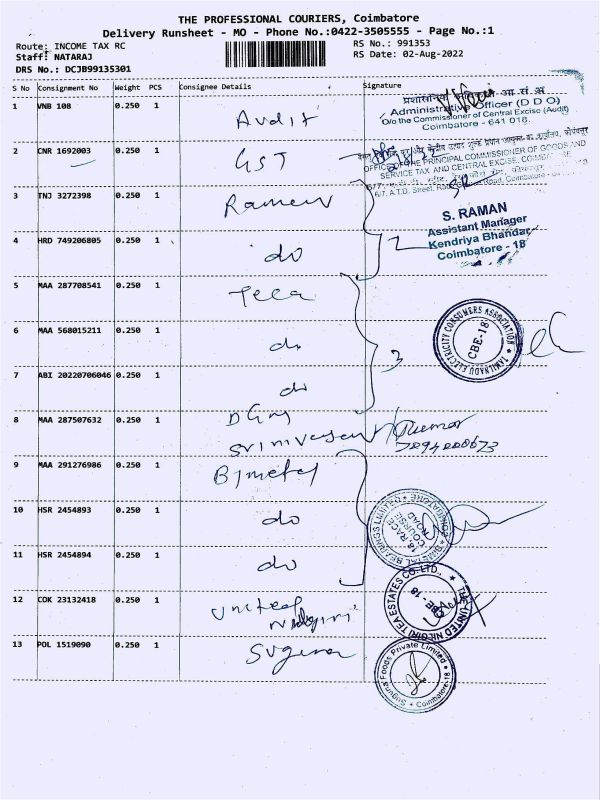 THE PROFESSIONAL COURIERS, Coimbatore
Delivery Runsheet - MO - Phone No.:0422-3505555 - Page No.:1
Route: INCOME TAX RC
RS No.: 991353
Staff: NATARAJ
RS Date: 02-Aug-2022
DRS No.: DCJB99135301
S No Consignment No Weight PCS Consignee Details Signature
1 VNB 108 0.250 1 Audit
आ सं अ
Administrative Officer (D D O)
O/o the Commissioner of Central Excise (Audit)
Coimbatore - 641 018.
2 CNR 1692003 0.250 1 GST
OFFICE OF THE PRINCIPAL COMMISSIONER OF GOODS AND
SERVICE TAX AND CENTRAL EXCISE, COIMBATORE
6/7, A.T.D. Street, Race Course Road, Coimbatore
3 TNJ 3272398 0.250 1 Ramen
S. RAMAN
Assistant Manager
Kendriya Bhandar
Coimbatore - 18
4 HRD 749206805 0.250 1 do 2
5 MAA 287708541 0.250 1 Teca
TAMILNADU ELECTRICITY CONSUMERS ASSOCIATION
CBE-18
6 MAA 568015211 0.250 1 do
7 ABI 20220706046 0.250 1 do 3
8 MAA 287507632 0.250 1 DGM
Srinivasan
9 MAA 291276986 0.250 1 Bimetal
10 HSR 2454893 0.250 1 do
BIMETAL BEARINGS LIMITED
COIMBATORE
18 RACE
COURSE
ROAD
11 HSR 2454894 0.250 1 do
12 COK 23132418 0.250 1 United
Nilgiri
THE UNITED NILGIRI TEA ESTATES CO. LTD.
CBE - 18
13 POL 1519090 0.250 1 Suguna
Suguna Foods Private Limited
Coimbatore-18